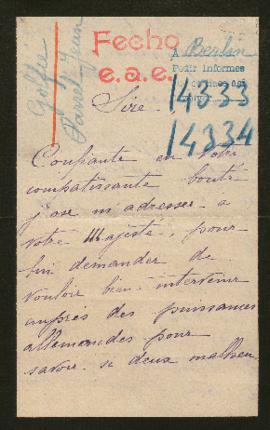 Fecho
e.a.e.
A Berlin
Pedir informes
14333
14334
Sire,
Confiante en votre
compatissante bonté
j'ose m'adresser a
votre Majesté, pour
lui demander de
vouloir bien intervenir
auprès des puissances
allemandes pour
savoir si deux malheu